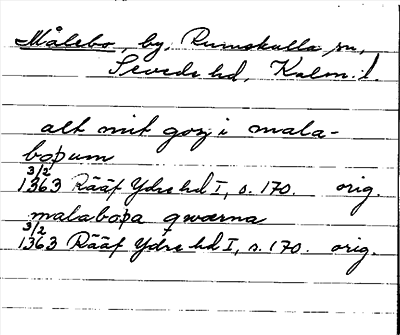 Målebo, by, Rumskulla sn,
Sevede hd, Kalm. l.
alt mit gozj i mala-
boþum
3/2
1363 Rääf Ydre hd I, s. 170. orig.
malaboþa qwærna
3/2
1363 Rääf Ydre hd I, s. 170. orig.